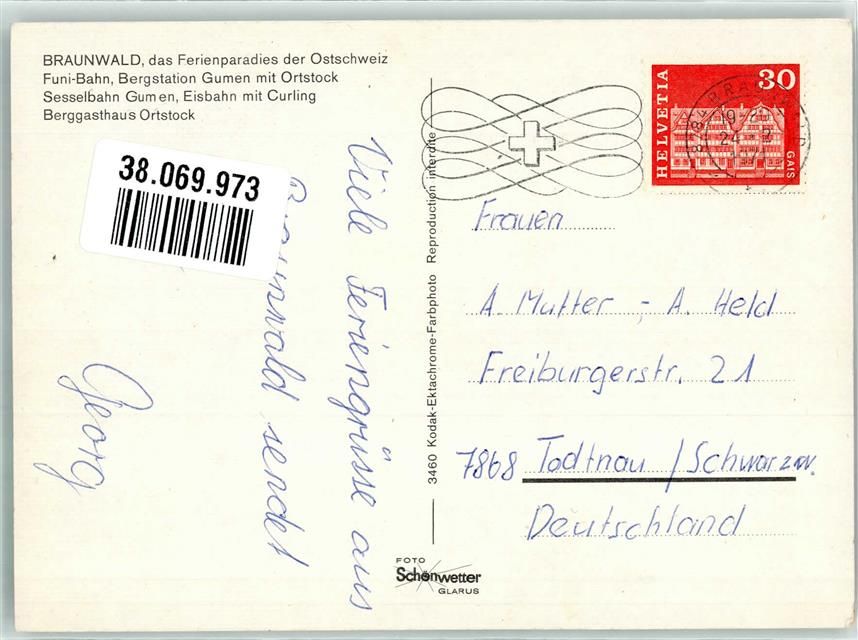 BRAUNWALD, das Ferienparadies der Ostschweiz
Funi-Bahn, Bergstation Gumen mit Ortstock
Sesselbahn Gumen, Eisbahn mit Curling
Berggasthaus Ortstock
38.069.973
Viele Feriengrüsse aus
Braunwald sendet
Georg
3460 Kodak-Ektachrome-Farbphoto Reproduction interdite
FOTO
Schönwetter
GLARUS
HELVETIA
30
GAIS
8784 BRAUNWALD
Frauen
A. Mutter - A. Held
Freiburgerstr. 21
7868 Todtnau / Schwarzw.
Deutschland